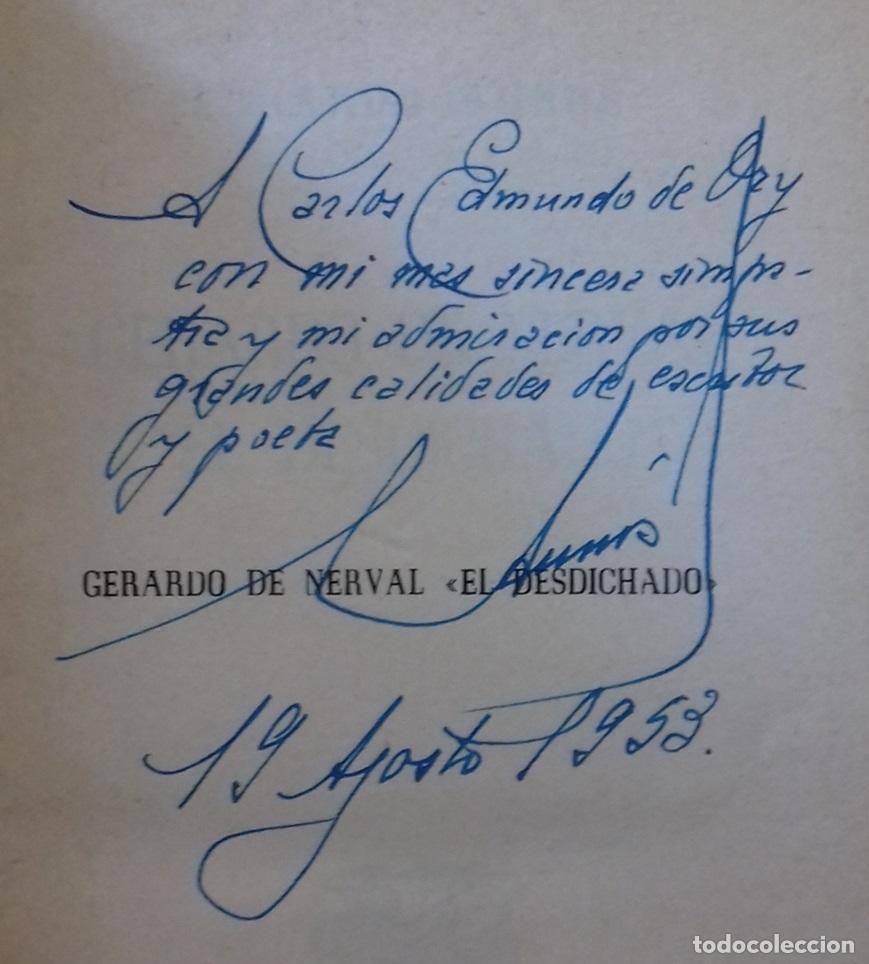 A Carlos Edmundo de Ory
con mi mas sincera simpa-
tia y mi admiracion por sus
grandes calidades de escritor
y poeta
Aunós
GERARDO DE NERVAL «EL DESDICHADO»
19 Agosto 1953.
todocoleccion